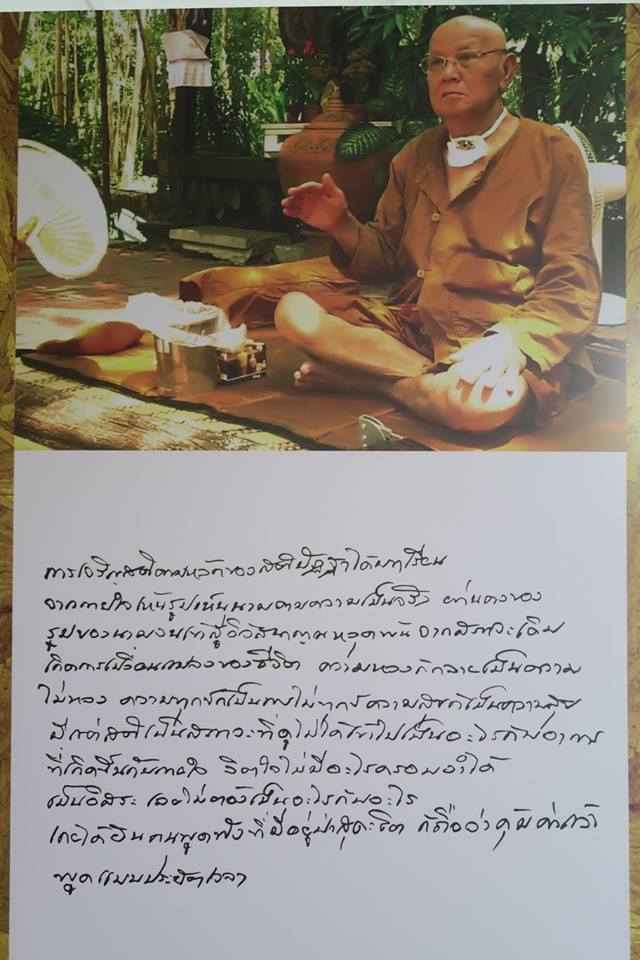 การเจริญสติตามหลักของสติปัฏฐาน ได้มาเรียน
จากกายใจ เห็นรูปเห็นนามตามความเป็นจริง
รูปของนามจนเข้าสู่วิปัสนาญาณ หลุดพ้น จากสภาวะเดิม
เกิดการเปลี่ยนแปลงของชีวิต ความหลงก็กลายเป็นความ
ไม่หลง ความทุกข์เป็นความไม่ทุกข์ ความ
มีแต่สติเป็นสภาวะที่ดู ไม่ได้เข้าไปเป็นอะไรกับอาการ
ที่เกิดขึ้นกับกายใจ จิตใจไม่มีอะไรครอบงำได้
เป็นอิสระ เลยไม่ต้องเป็นอะไรกับอะไร
เคยได้ยินคนพูดฟังที่มีอยู่ป่าสุคะโต ก็ถือว่าคุ้มค่าแล้ว
พูดแบบประหยัดเวลา